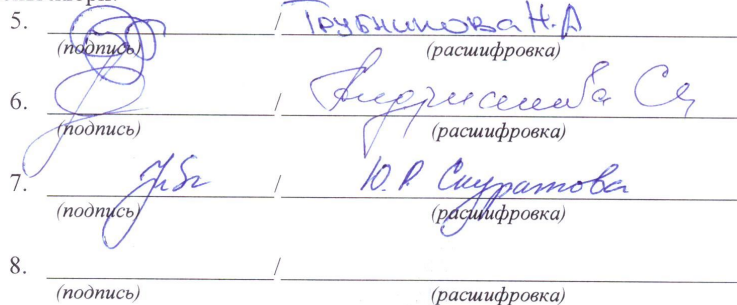 5. / Трубникова Н.А
(подпись) (расшифровка)
6. /
(подпись) (расшифровка)
7. / Ю.Р Скуратова
(подпись) (расшифровка)
8. /
(подпись) (расшифровка)